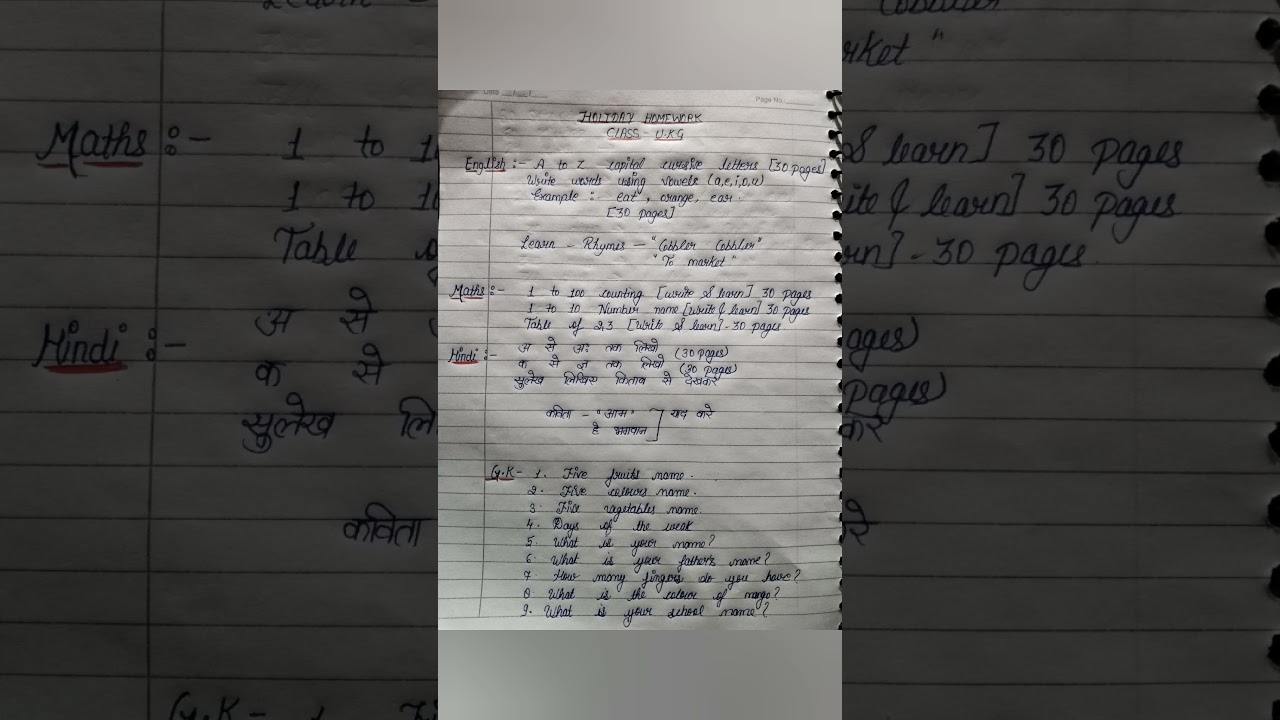 Page No.
HOLIDAY HOMEWORK
CLASS - U.K.G
English :- A to Z capital cursive letters [30 pages]
Write words using vowels (a,e,i,o,u)
Example : eat, orange, ear.
[30 pages]
Learn - Rhymes - "Cobbler Cobbler"
"To market"
Maths :- 1 to 100 counting [write & learn] 30 pages
1 to 10 Number name [write & learn] 30 pages
Table of 2,3 [write & learn] - 30 pages
Hindi :- अ से अः तक लिखो (30 pages)
क से ज्ञ तक लिखो (30 pages)
सुलेख लिखिए किताब से देखकर
कविता - "आम" ] याद करे
हे भगवान
G.K - 1. Five fruits name.
2. Five colours name.
3. Five vagetables name.
4. Days of the weak
5. What is your name?
6. What is your father's name?
7. How many fingers do you have?
8. What is the colour of mango?
9. What is your school name?